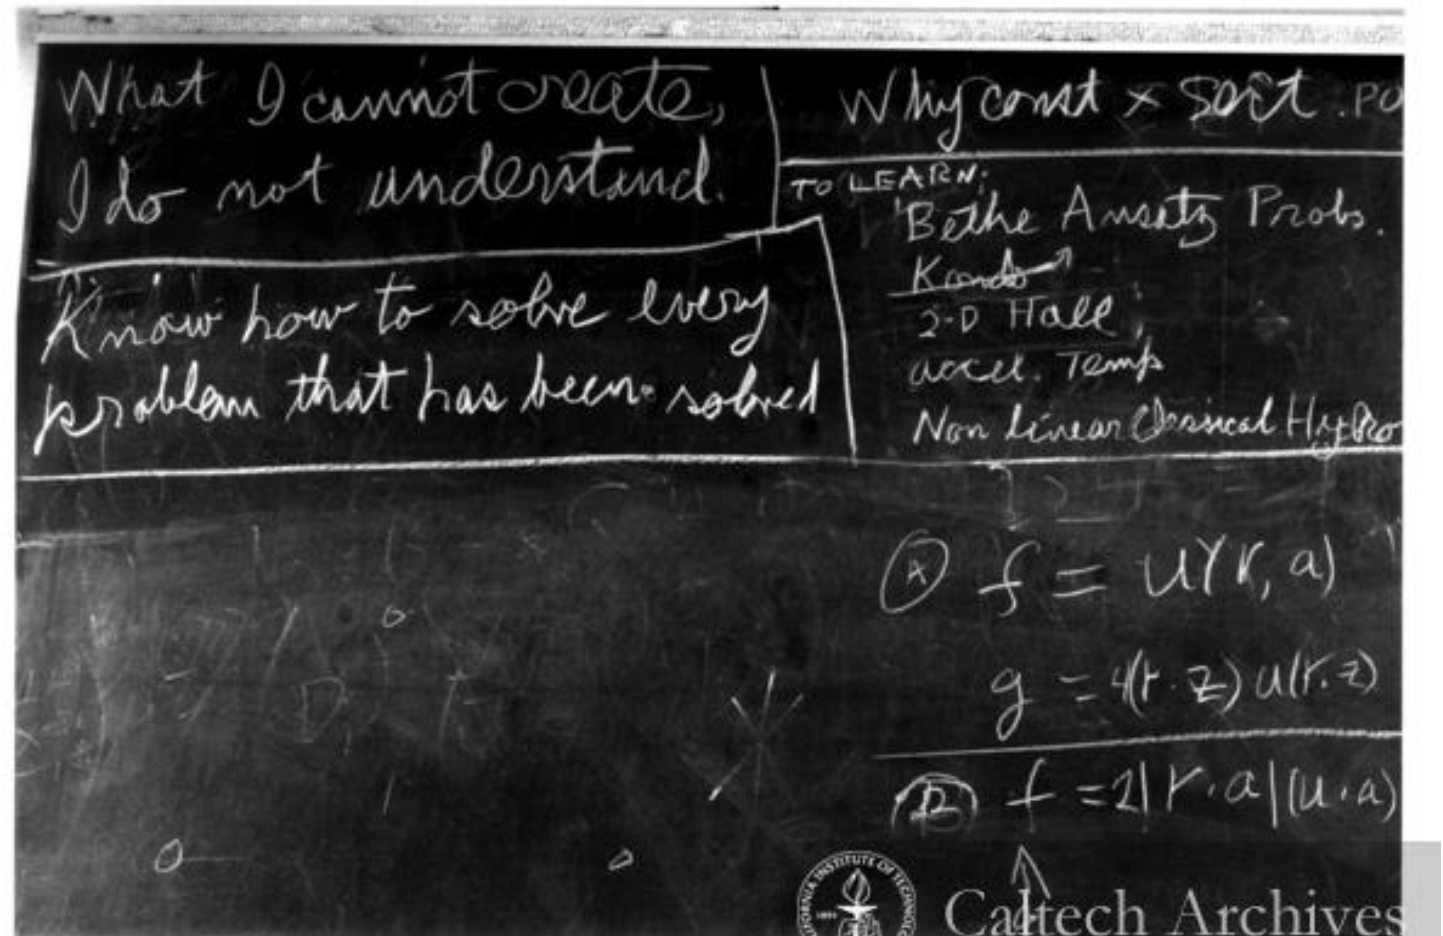 What I cannot create,
I do not understand.
Know how to solve every
problem that has been solved
Why const × sort . PO
TO LEARN:
Bethe Ansatz Probs.
Kondo
2-D Hall
accel. Temp
Non linear Classical Hydro
Ⓐ f = u(r, a)
g = 4(r·z) u(r.z)
f = 2|r·a|(u·a)
CALIFORNIA INSTITUTE OF TECHNOLOGY
1891
Caltech Archives